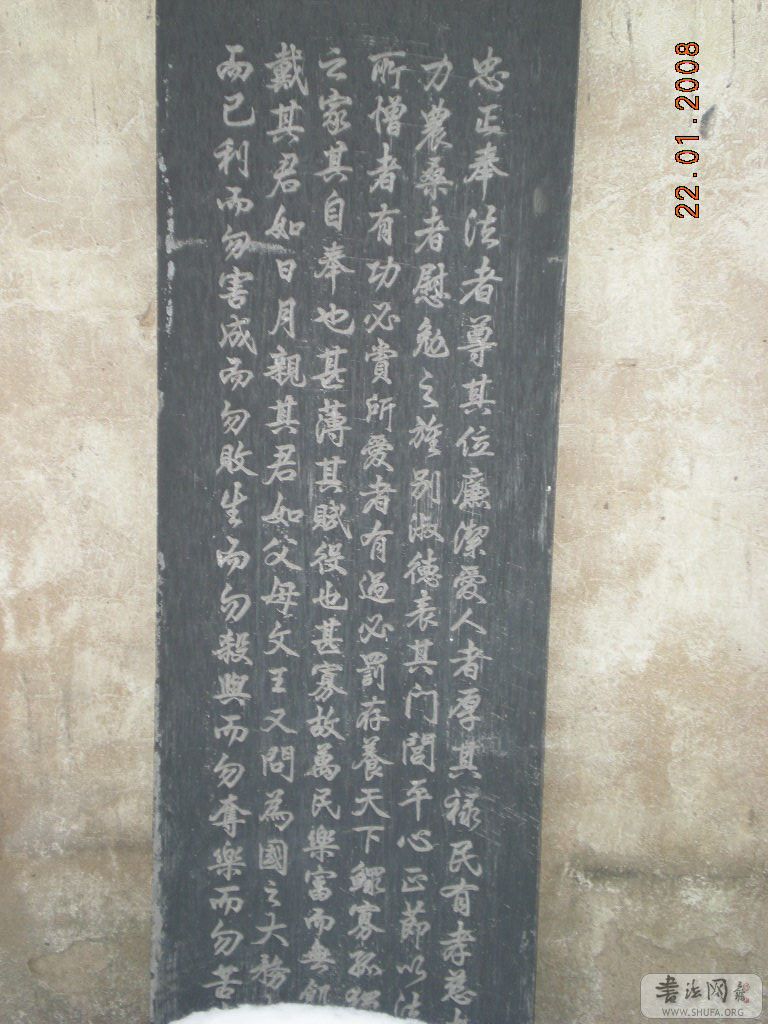 忠正奉法者尊其位廉潔愛人者厚其祿民有孝慈
力農桑者慰勉之旌别淑德表其门閭平心正節以法
所憎者有功必賞所愛者有過必罰存養天下鰥寡孤
之家其自奉也甚薄其賦役也甚寡故萬民樂富而無飢
戴其君如日月親其君如父母文王又問為國之大務
而已利而勿害成而勿敗生而勿殺與而勿奪樂而勿苦
22.01.2008
書法网
WWW.SHUFA.ORG